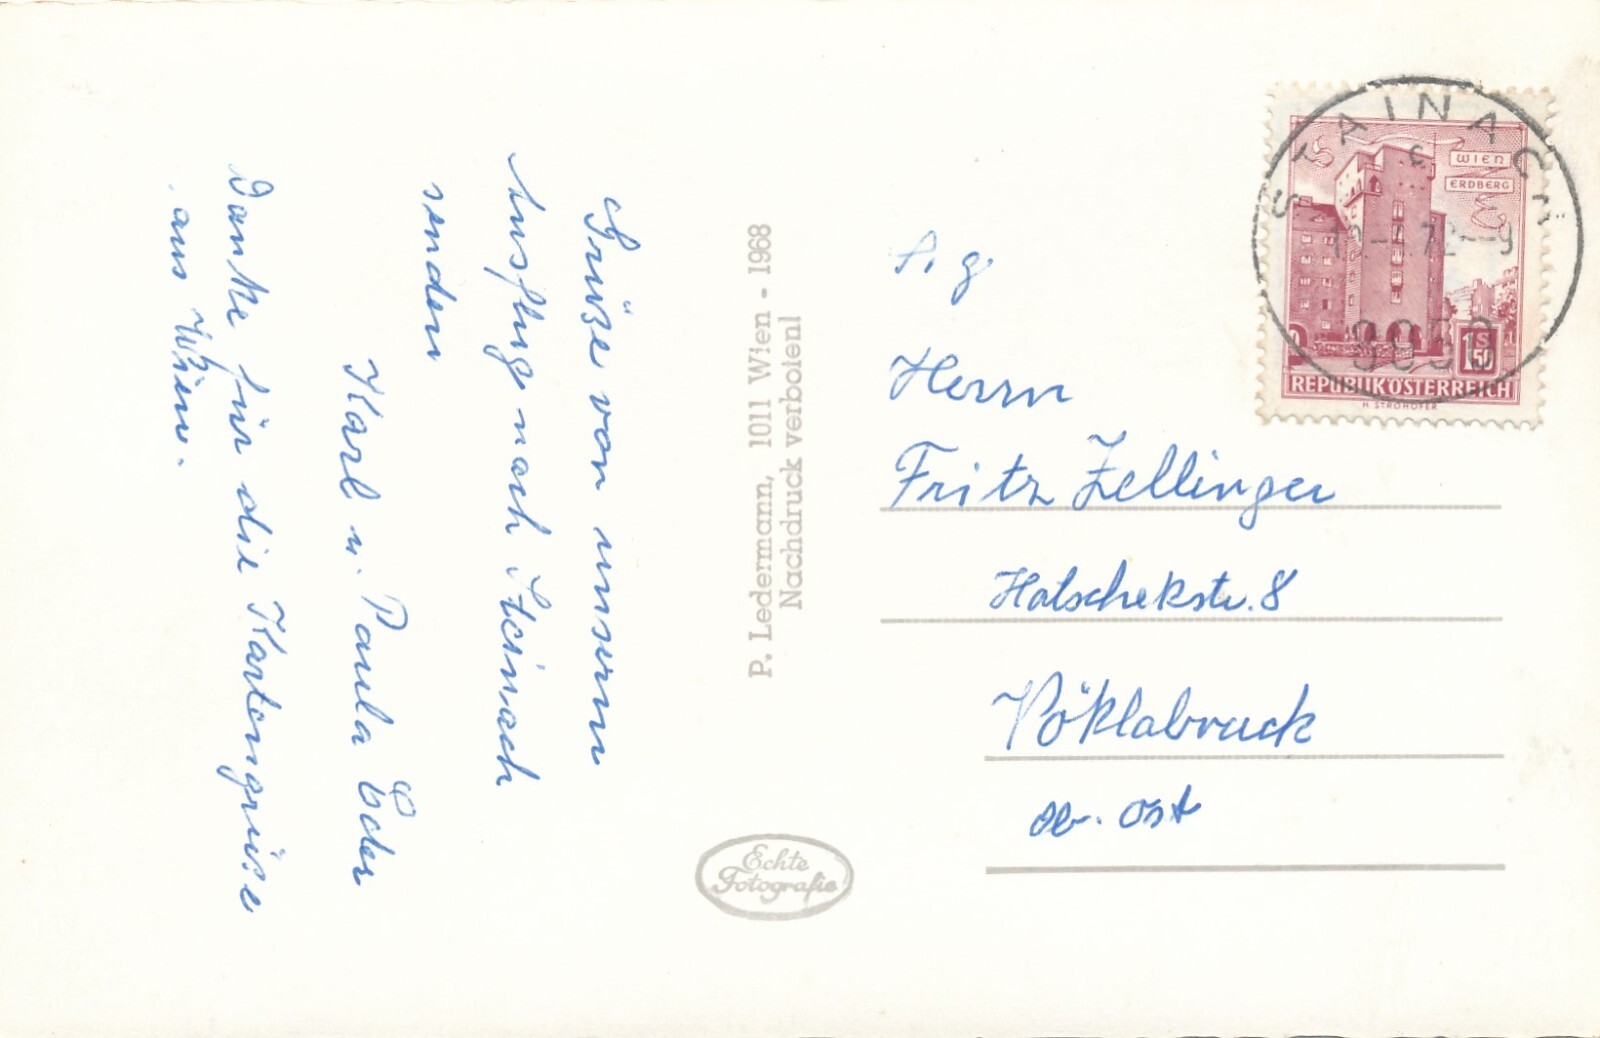 Grüße von unserm
Ausflug nach Steinach
senden
Karl u. Paula Eder
Danke für die Kartengrüße
aus Wien.
P. Ledermann, 1011 Wien - 1968
Nachdruck verboten!
Echte
Fotografie
S. g.
Herrn
Fritz Zellinger
Hatschekstr. 8
Vöklabruck
ob. Öst
STAINACH
8950
WIEN
ERDBERG
1S50
REPUBLIK ÖSTERREICH
H. STROHOFER